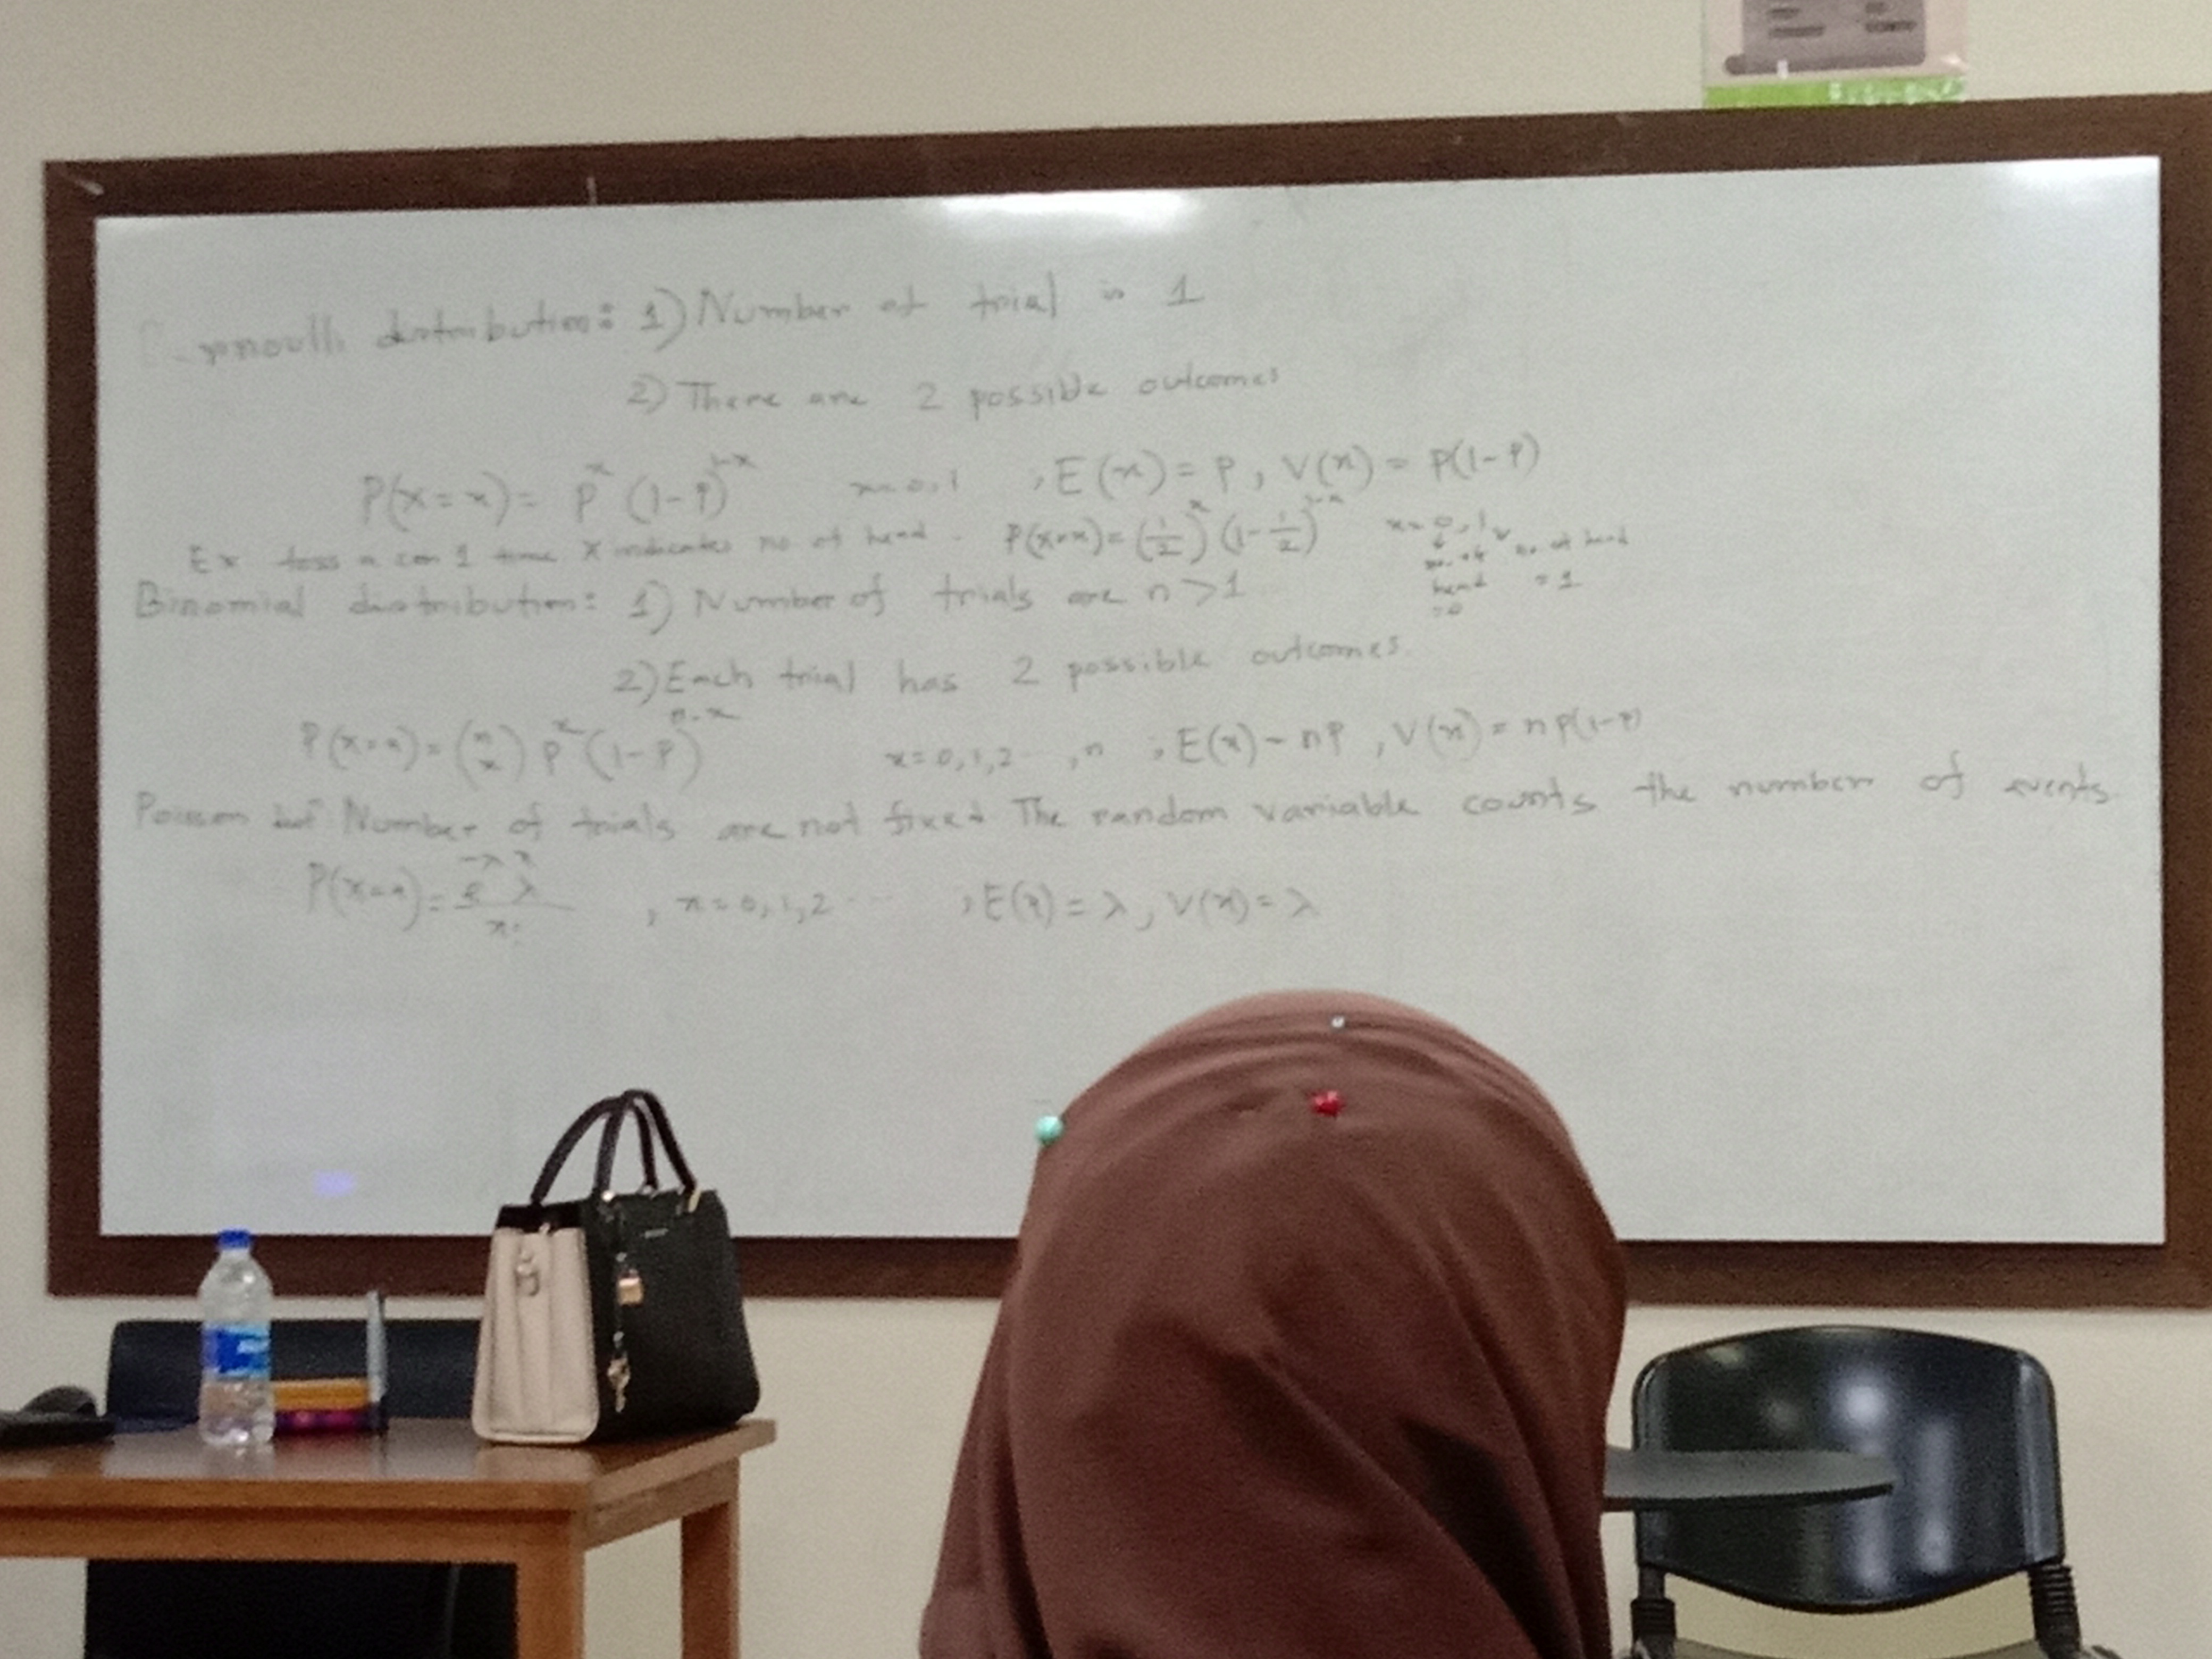 distribution: 1) Number of trial is 1
2) There are 2 possible outcomes
P(X=x) = p^x (1-p)^{1-x} x=0,1 ; E(x) = P, V(x) = P(1-P)
Ex toss a coin 1 time X indicates no of head. P(X=x) = (1/2)^x (1-1/2)^{1-x} x=0,1
no. of head =0 no of head =1
Binomial distribution: 1) Number of trials are n>1
2) Each trial has 2 possible outcomes.
P(X=x) = (n x) p^x (1-P)^{n-x} x=0,1,2 ... ,n ; E(x) = nP, V(x) = nP(1-P)
Poisson Number of trials are not fixed The random variable counts the number of events.
P(X=x) = e^{-λ} λ^x / x! , x=0,1,2 ... ; E(x) = λ, V(x) = λ